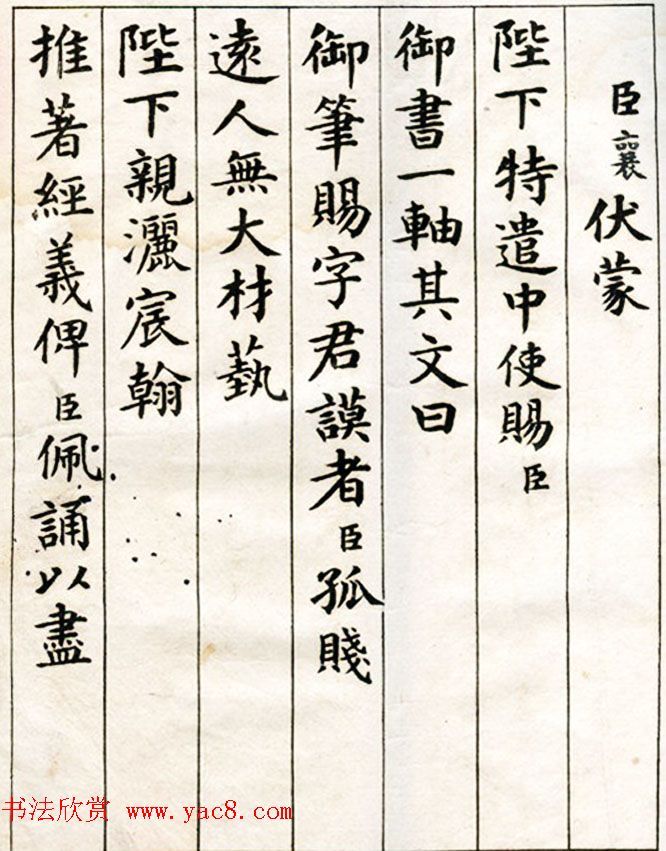 臣襄伏蒙
陛下特遣中使賜臣
御書一軸其文曰
御筆賜字君謨者臣孤賤
遠人無大材藝
陛下親灑宸翰
推著經義俾臣佩誦以盡
书法欣赏 www.yac8.com